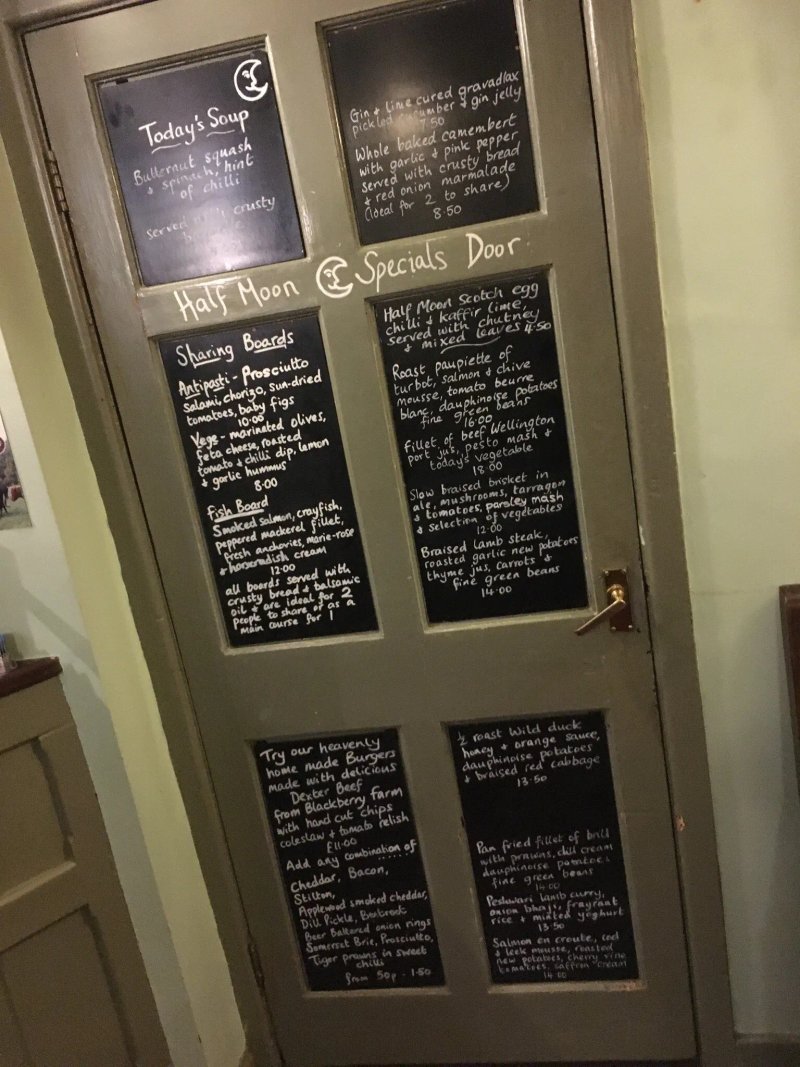 Today's Soup
Butternut squash
& spinach, hint
of chilli
served with crusty
Gin & lime cured gravadlax
pickled cucumber & gin jelly
7.50
Whole baked camembert
with garlic & pink pepper
served with crusty bread
& red onion marmalade
(ideal for 2 to share)
8.50
Half Moon Specials Door
Sharing Boards
Antipasti - Prosciutto
Salami, chorizo, sun-dried
tomatoes, baby figs
10.00
Vege - marinated olives,
feta cheese, roasted
tomato & chilli dip, lemon
& garlic hummus
8.00
Fish Board
Smoked salmon, crayfish,
peppered mackerel fillet,
fresh anchovies, marie-rose
& horseradish cream
12.00
all boards served with
crusty bread & balsamic
oil & are ideal for 2
people to share or as a
main course for 1
Half Moon Scotch egg
chilli & kaffir lime,
served with chutney
& mixed leaves 4.50
Roast paupiette of
turbot, salmon & chive
mousse, tomato beurre
blanc, dauphinoise potatoes
fine green beans
16.00
Fillet of beef Wellington
port jus, pesto mash &
today's vegetable
18.00
Slow braised brisket in
ale, mushrooms, tarragon
& tomatoes, parsley mash
& selection of vegetables
12.00
Braised lamb steak,
roasted garlic new potatoes
thyme jus, carrots &
fine green beans
14.00
Try our heavenly
home made Burgers
made with delicious
Dexter Beef
from Blackberry farm
with hand cut chips
coleslaw & tomato relish
£11.00
Add any combination of
Cheddar, Bacon,
Stilton,
Applewood smoked cheddar,
Dill Pickle, Beetroot
Beer Battered onion rings
Somerset Brie, Prosciutto,
Tiger prawns in sweet
chilli
from 50p - 1.50
½ roast Wild duck
honey & orange sauce,
dauphinoise potatoes
& braised red cabbage
13.50
Pan fried fillet of brill
with prawns, dill cream
dauphinoise potatoes
fine green beans
14.00
Peshwari lamb curry,
onion bhaji, fragrant
rice & minted yoghurt
13.50
Salmon en croute, cod
& leek mousse, roasted
new potatoes, cherry vine
tomatoes, saffron cream
14.00